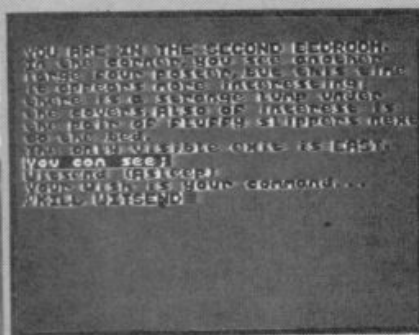 YOU ARE IN THE SECOND BEDROOM.
In the corner, you see another
large four poster, but this time
it appears more interesting;
there is a strange lump under
the covers. Also of interest is
the pair of fluffy slippers next
to the bed.
The only visible exit is EAST.
You can see;
Witsend (Asleep)
Your wish is your command...
KILL WITSEND